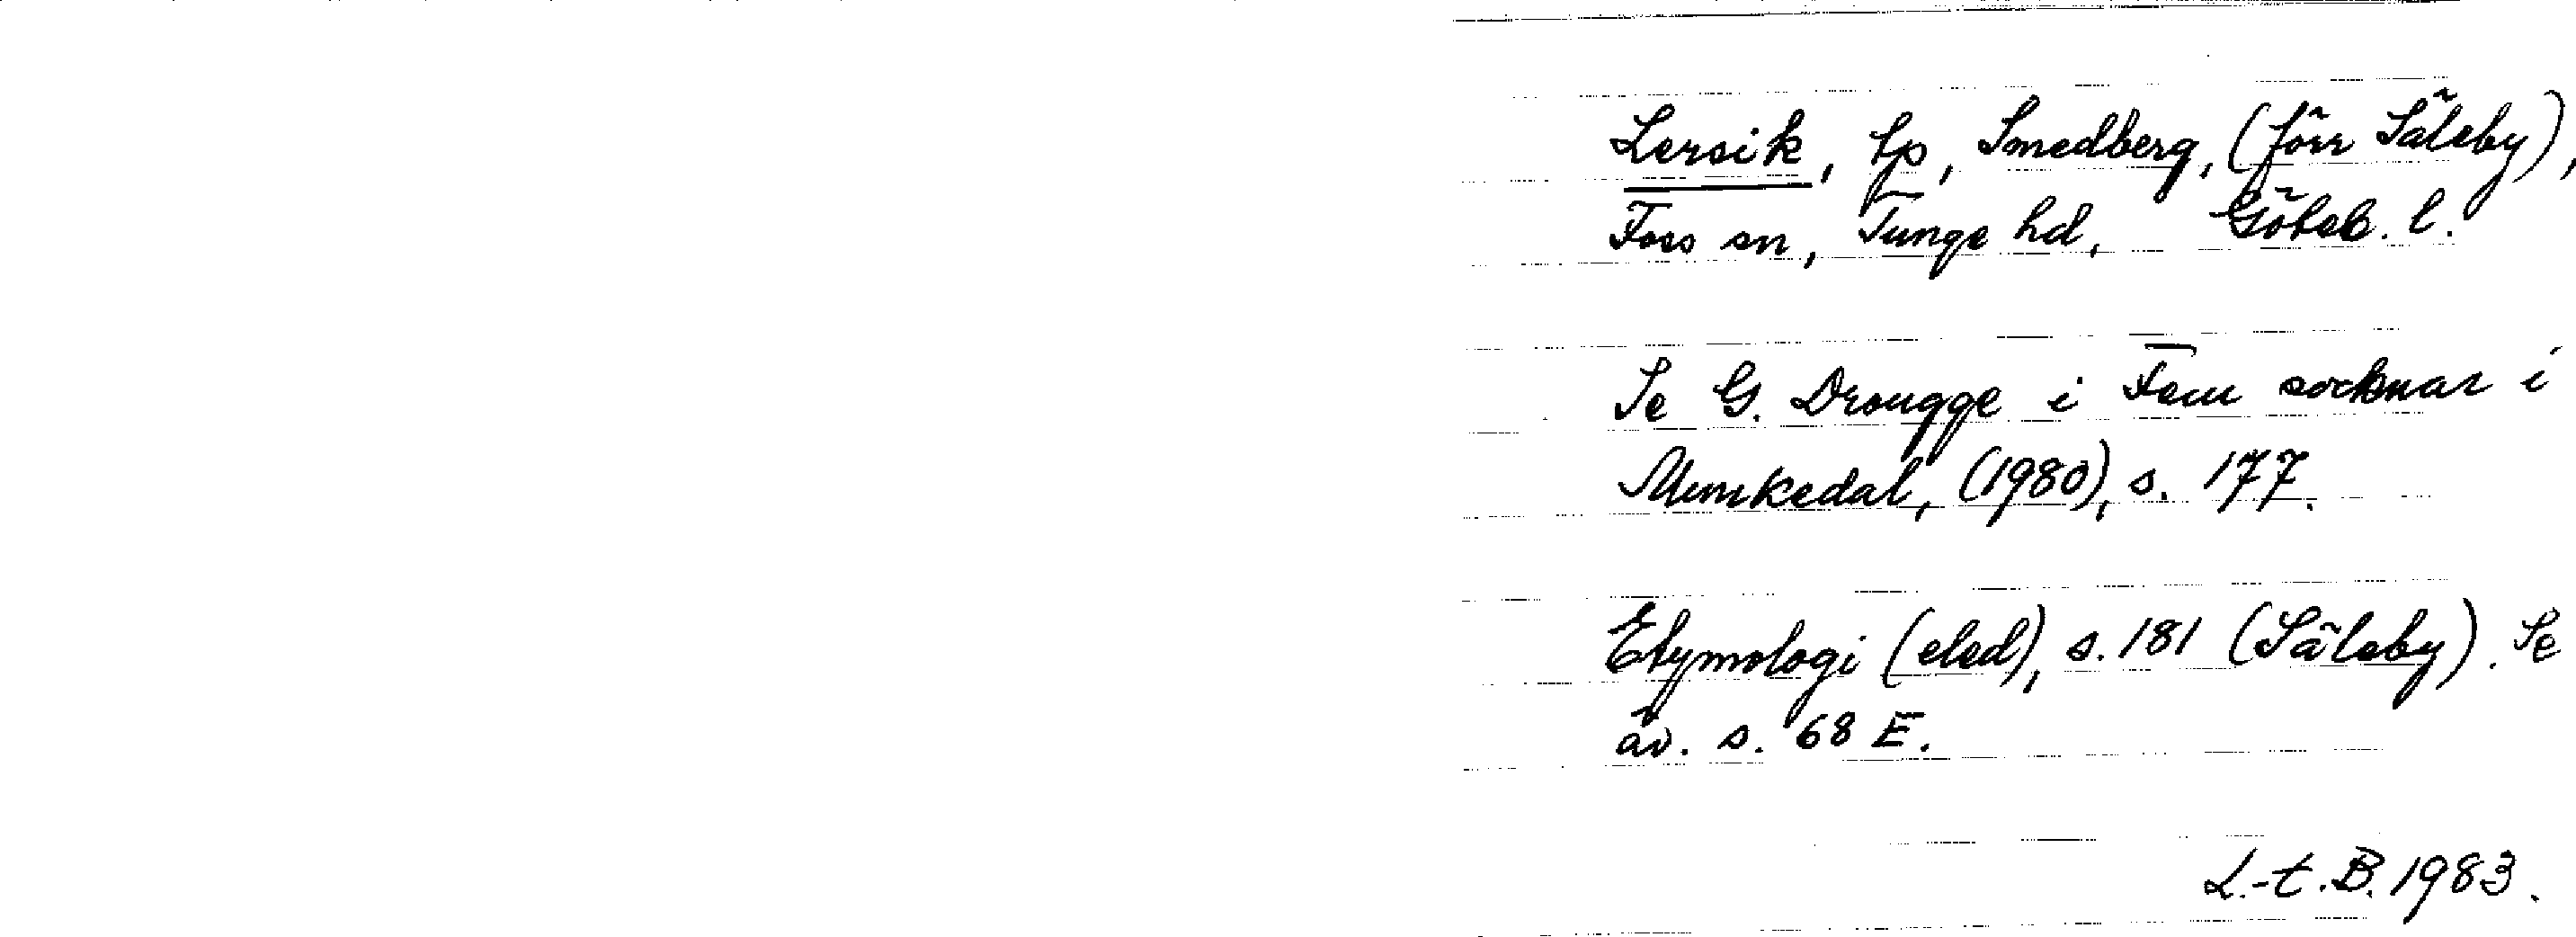 Lersik, tp, Smedberg, (förr Såleby),
Foss sn, Tunge hd, Göteb. l.
Se G. Drougge i Fem socknar i
Munkedal, (1980), s. 177.
Etymologi (eled), s. 181 (Såleby). Se
äv. s. 68 E.
L.-t. B. 1983.